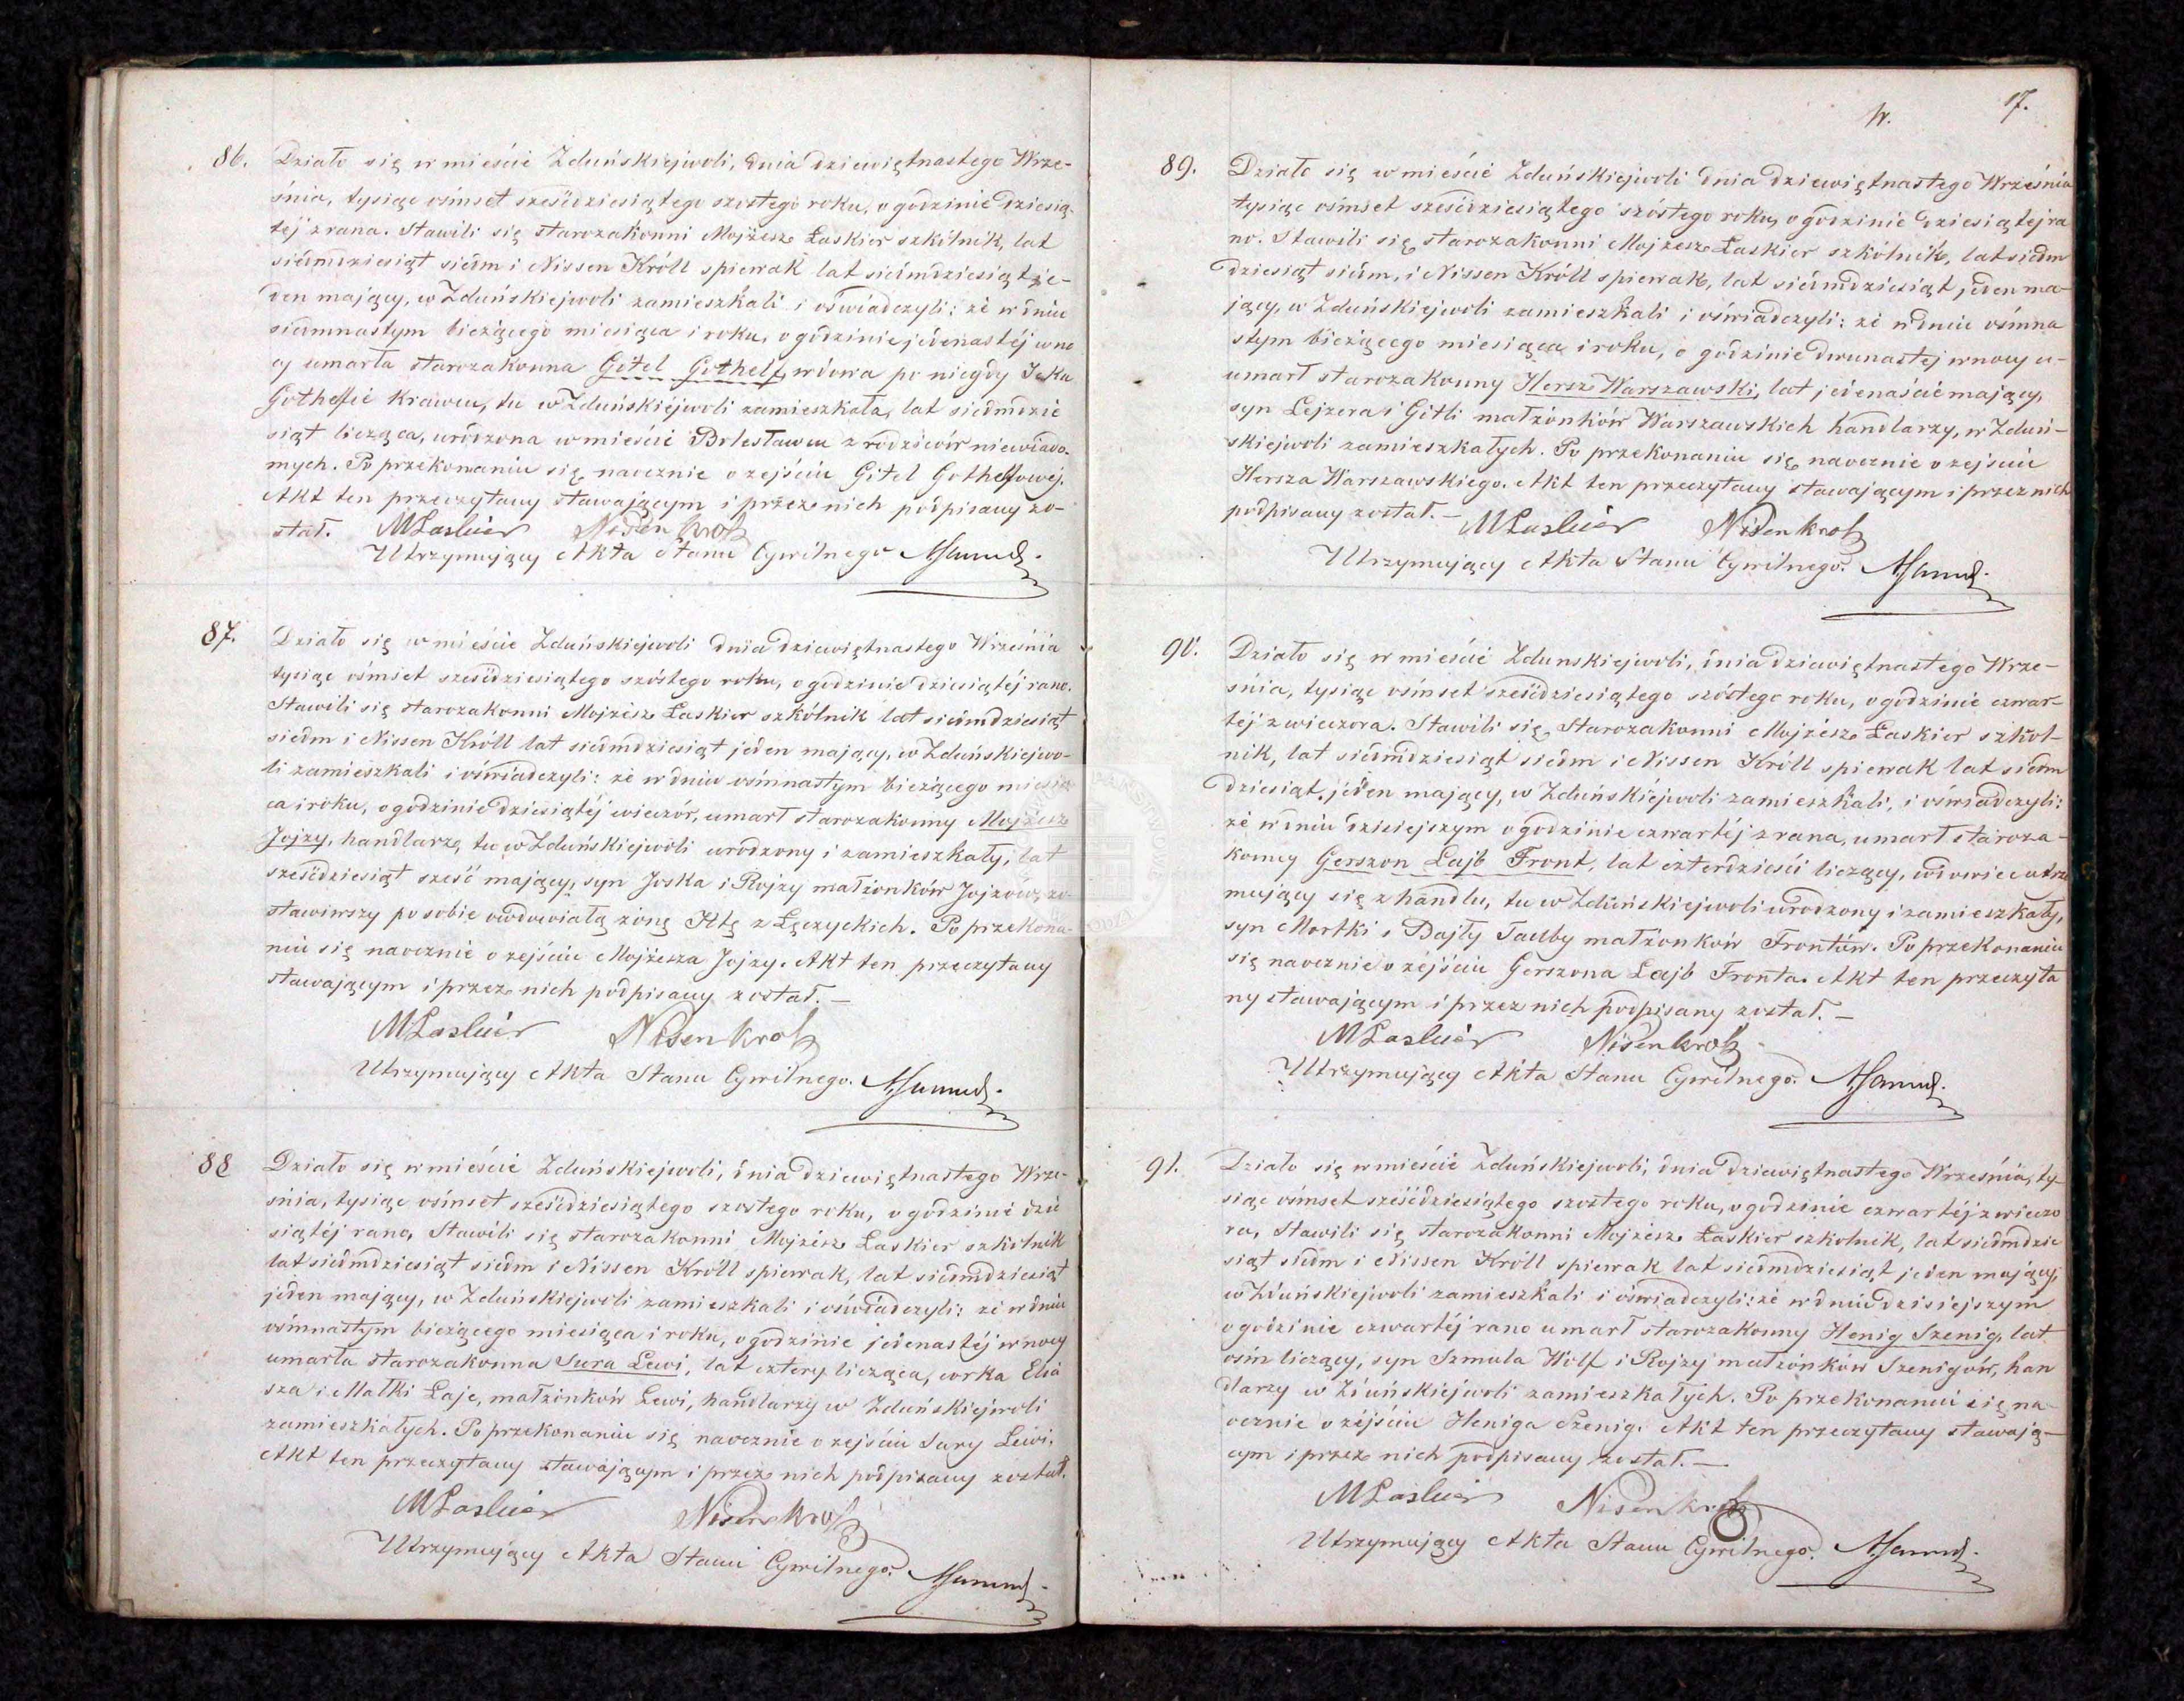 86.
Działo się w mieście Zduńskiejwoli, dnia dziewiętnastego Wrze-
śnia, tysiąc ośmset sześćdziesiątego szostego roku, o godzinie dziesią-
téj z rana. Stawili się starozakonni Mojżesz Łaskier szkolnik, lat
siedmdziesiąt siedm i Nissen Króll spiewak lat siedmdziesiąt je-
den mający, w Zduńskiejwoli zamieszkali i oświadczyli: że w dniu
siedmnastym bieżącego miesiąca i roku, o godzinie jedenastéj w no
cy umarła starozakonna Gitel Gothelf, wdowa po niegdy Icku
Gothelfie krawcu, tu w Zduńskiéjwoli zamieszkała, lat siedmdzie
siąt licząca, urodzona w mieście Bolesławcu z rodziców niewiado-
mych. Po przekonaniu się naocznie o zejściu Gitel Gothelfowéj.
Akt ten przeczytany stawającym i przez nich podpisany zo-
stał. MLaskier Nisen Krol
Utrzymujący Akta Stanu Cywilnego
87.
Działo się w mieście Zduńskiejwoli dnia dziewiętnastego Września
tysiąc ośmset sześćdziesiątego szóstego roku, o godzinie dziesiątéj rano.
Stawili się starozakonni Mojżesz Łaskier szkólnik lat siedmdziesiąt
siedm i Nissen Króll lat siedmdziesiąt jeden mający, w Zduńskiejwo-
li zamieszkali i oświadczyli: że w dniu ośmnastym bieżącego miesią
ca i roku, o godzinie dziesiątéj wieczór, umarł starozakonny Mojżesz
Jojzy, handlarz, tu w Zduńskiejwoli urodzony i zamieszkały, lat
sześćdziesiąt sześć mający, syn Joska i Rojzy małżonków Jojzów, zo-
stawiwszy po sobie owdowiałą żonę Itę z Łęczyckich. Po przekona-
niu się naocznie o zejściu Mojżesza Jojzy. Akt ten przeczytany
stawającym i przez nich podpisany został. —
MLaskier Nisen Krol
Utrzymujący Akta Stanu Cywilnego.
88
Działo się w mieście Zduńskiejwoli, dnia dziewiętnastego Wrze-
śnia, tysiąc ośmset sześćdziesiątego szostego roku, o godzinie dzie
siątéj rano, Stawili się starozakonni Mojżesz Łaskier szkolnik
lat siedmdziesiąt siedm i Nissen Króll spiewak, lat siedmdziesiąt
jeden mający, w Zduńskiejwoli zamieszkali i oświadczyli: że w dniu
ośmnastym bieżącego miesiąca i roku, o godzinie jedenastéj w nocy
umarła starozakonna Sura Lewi, lat cztery licząca, córka Elia
sza i Małki Łaje, małżonków Lewi, handlarzy w Zduńskiejwoli
zamieszkałych. Po przekonaniu się naocznie o zejściu Sury Lewi.
Akt ten przeczytany stawającym i przez nich podpisany został.
MLaskier Nisen Krol
Utrzymujący Akta Stanu Cywilnego.
17.
89.
Działo się w mieście Zduńskiejwoli dnia dziewiętnastego Września
tysiąc ośmset sześćdziesiątego szóstego roku, o godzinie dziesiątej ra
no. Stawili się starozakonni Mojżesz Łaskier szkólnik, lat siedm
dziesiąt siedm, i Nissen Króll spiewak, lat siedmdziesiąt jeden ma-
jący, w Zduńskiejwoli zamieszkali i oświadczyli: że w dniu ośmna
stym bieżącego miesiąca i roku, o godzinie dwunastej w nocy u-
umarł starozakonny Hersz Warszawski, lat jedenaście mający,
syn Lejzera i Gitli małżonków Warszawskich handlarzy, w Zduń-
skiejwoli zamieszkałych. Po przekonaniu się naocznie o zejściu
Hersza Warszawskiego. Akt ten przeczytany stawającym i przez nich
podpisany został. — MLaskier Nisen Krol
Utrzymujący Akta Stanu Cywilnego.
90.
Działo się w mieście Zdunskiejwoli, dnia dziewiętnastego Wrze-
śnia, tysiąc ośmset sześćdziesiątego szóstego roku, o godzinie czwar-
téj z wieczora. Stawili się Starozakonni Mojżesz Łaskier szkol-
nik, lat siedmdziesiąt siedm i Nissen Króll spiewak lat siedm
dziesiąt jeden mający, w Zduńskiéjwoli zamieszkali, i oświadczyli:
że w dniu dzisiejszym o godzinie czwartéj z rana, umarł staroza-
konny Gerszon Lajb Front, lat czterdzieści liczący, wdowiec utrzy
mujący się z handlu, tu w Zduńskiejwoli urodzony i zamieszkały,
syn Mortki i Bajły Tauby małżonków Frontów. Po przekonaniu
się naocznie o zejściu Gerszona Lajb Fronta. Akt ten przeczyta
ny stawającym i przez nich podpisany został. —
MLaskier Nisen Krol
Utrzymujący Akta Stanu Cywilnego.
91.
Działo się w mieście Zduńskiejwoli, dnia dziewiętnastego Września, ty-
siąc ośmset sześćdziesiątego szostego roku, o godzinie czwartéj z wieczo
ra, Stawili się starozakonni Mojżesz Łaskier szkolnik, lat siedmdzie
siąt siedm i Nissen Króll spiewak lat siedmdziesiąt jeden mający,
w Zduńskiejwoli zamieszkali i oświadczyli: że w dniu dzisiejszym
o godzinie czwartéj rano umarł starozakonny Henig Szenig, lat
ośm liczący, syn Szmula Wolf i Rojzy małżonków Szenigów, han
dlarzy w Zduńskiéjwoli zamieszkałych. Po przekonaniu się na-
ocznie o zéjściu Heniga Szenig. Akt ten przeczytany stawają-
cym i przez nich podpisany został. —
MLaskier Nisen Krol
Utrzymujący Akta Stanu Cywilnego.